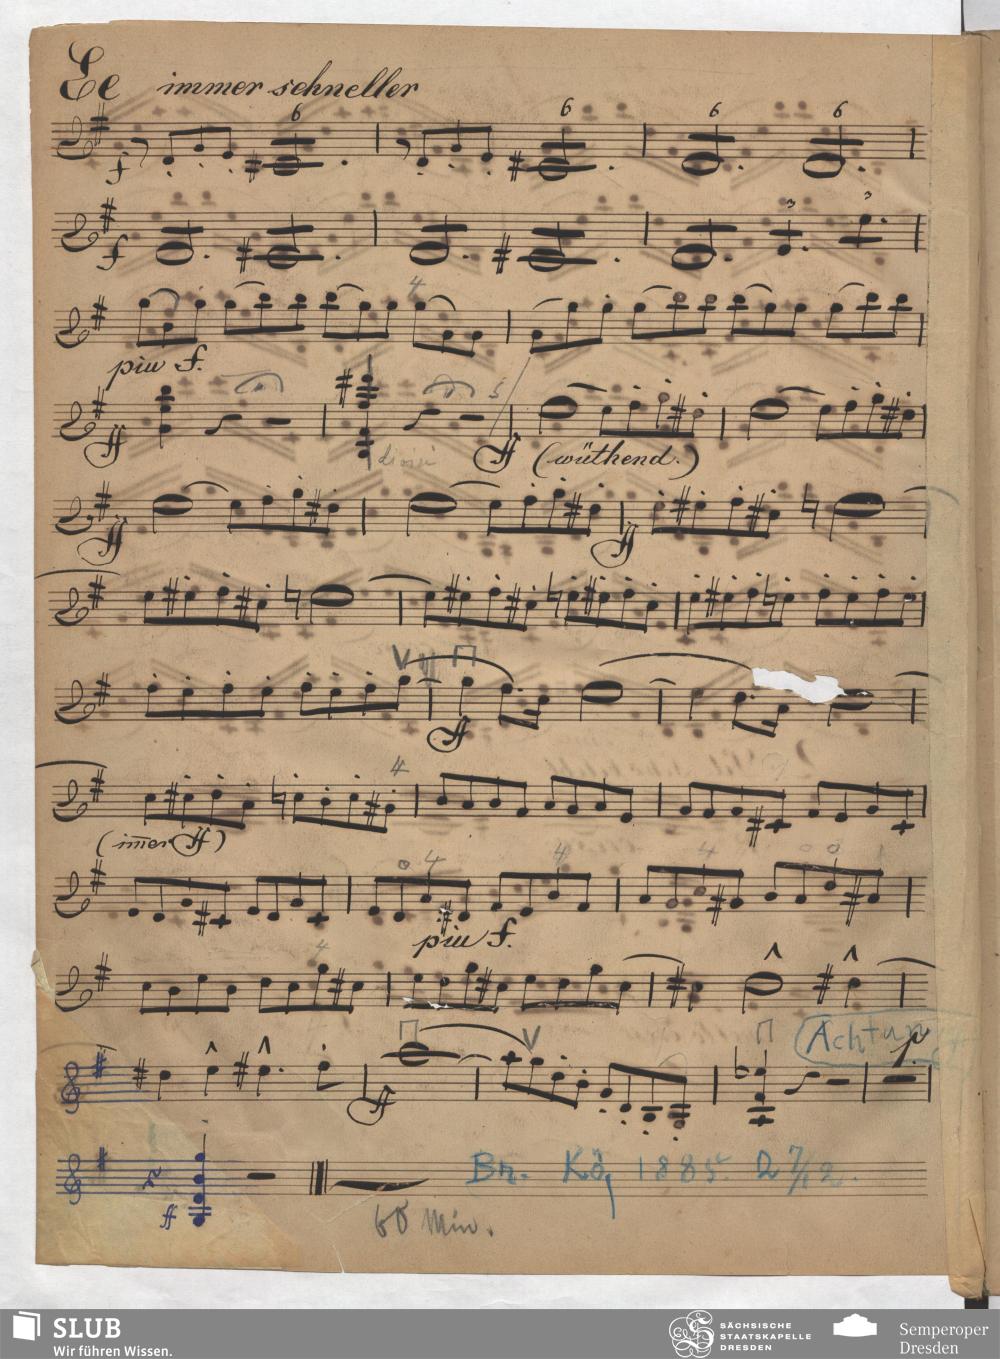 Ee immer schneller
f 6 6 6 6
f 3 3
4
piu f.
5
ff divisi ff (wüthend.)
ff ff
V
ff
4
(immer ff)
o 4 4 4 o o
piu f.
4
V Achtung p
ff
Br. Kö 1885. D 7/12.
ff
60 Min.
SLUB
Wir führen Wissen.
SÄCHSISCHE
STAATSKAPELLE
DRESDEN
Semperoper
Dresden